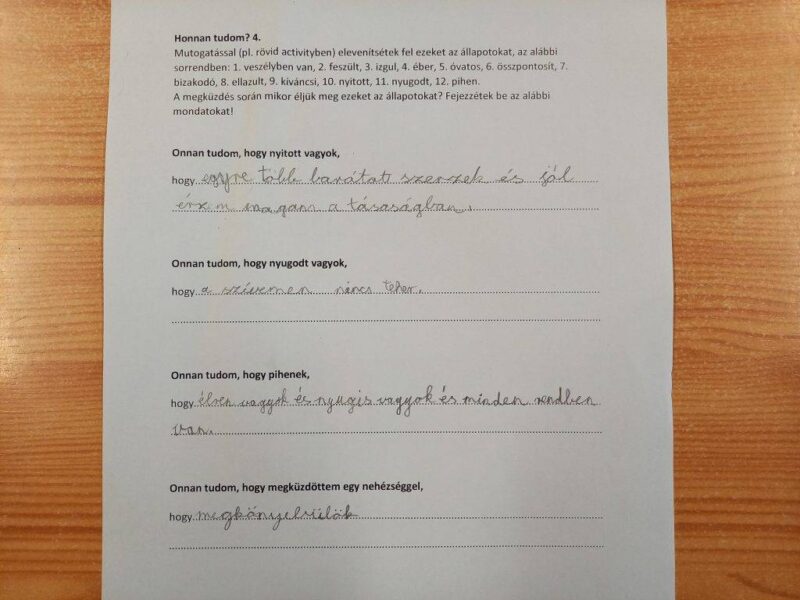 Honnan tudom? 4.
Mutogatással (pl. rövid activityben) elevenítsétek fel ezeket az állapotokat, az alábbi
sorrendben: 1. veszélyben van, 2. feszült, 3. izgul, 4. éber, 5. óvatos, 6. összpontosít, 7.
bizakodó, 8. ellazult, 9. kíváncsi, 10. nyitott, 11. nyugodt, 12. pihen.
A megküzdés során mikor éljük meg ezeket az állapotokat? Fejezzétek be az alábbi
mondatokat!
Onnan tudom, hogy nyitott vagyok,
hogy egyre több barátot szerzek és jól
érzem magam a társaságban.
Onnan tudom, hogy nyugodt vagyok,
hogy a szívemen nincs teher.
Onnan tudom, hogy pihenek,
hogy élven vagyok és nyugis vagyok és minden rendben
van.
Onnan tudom, hogy megküzdöttem egy nehézséggel,
hogy megkönyebülök